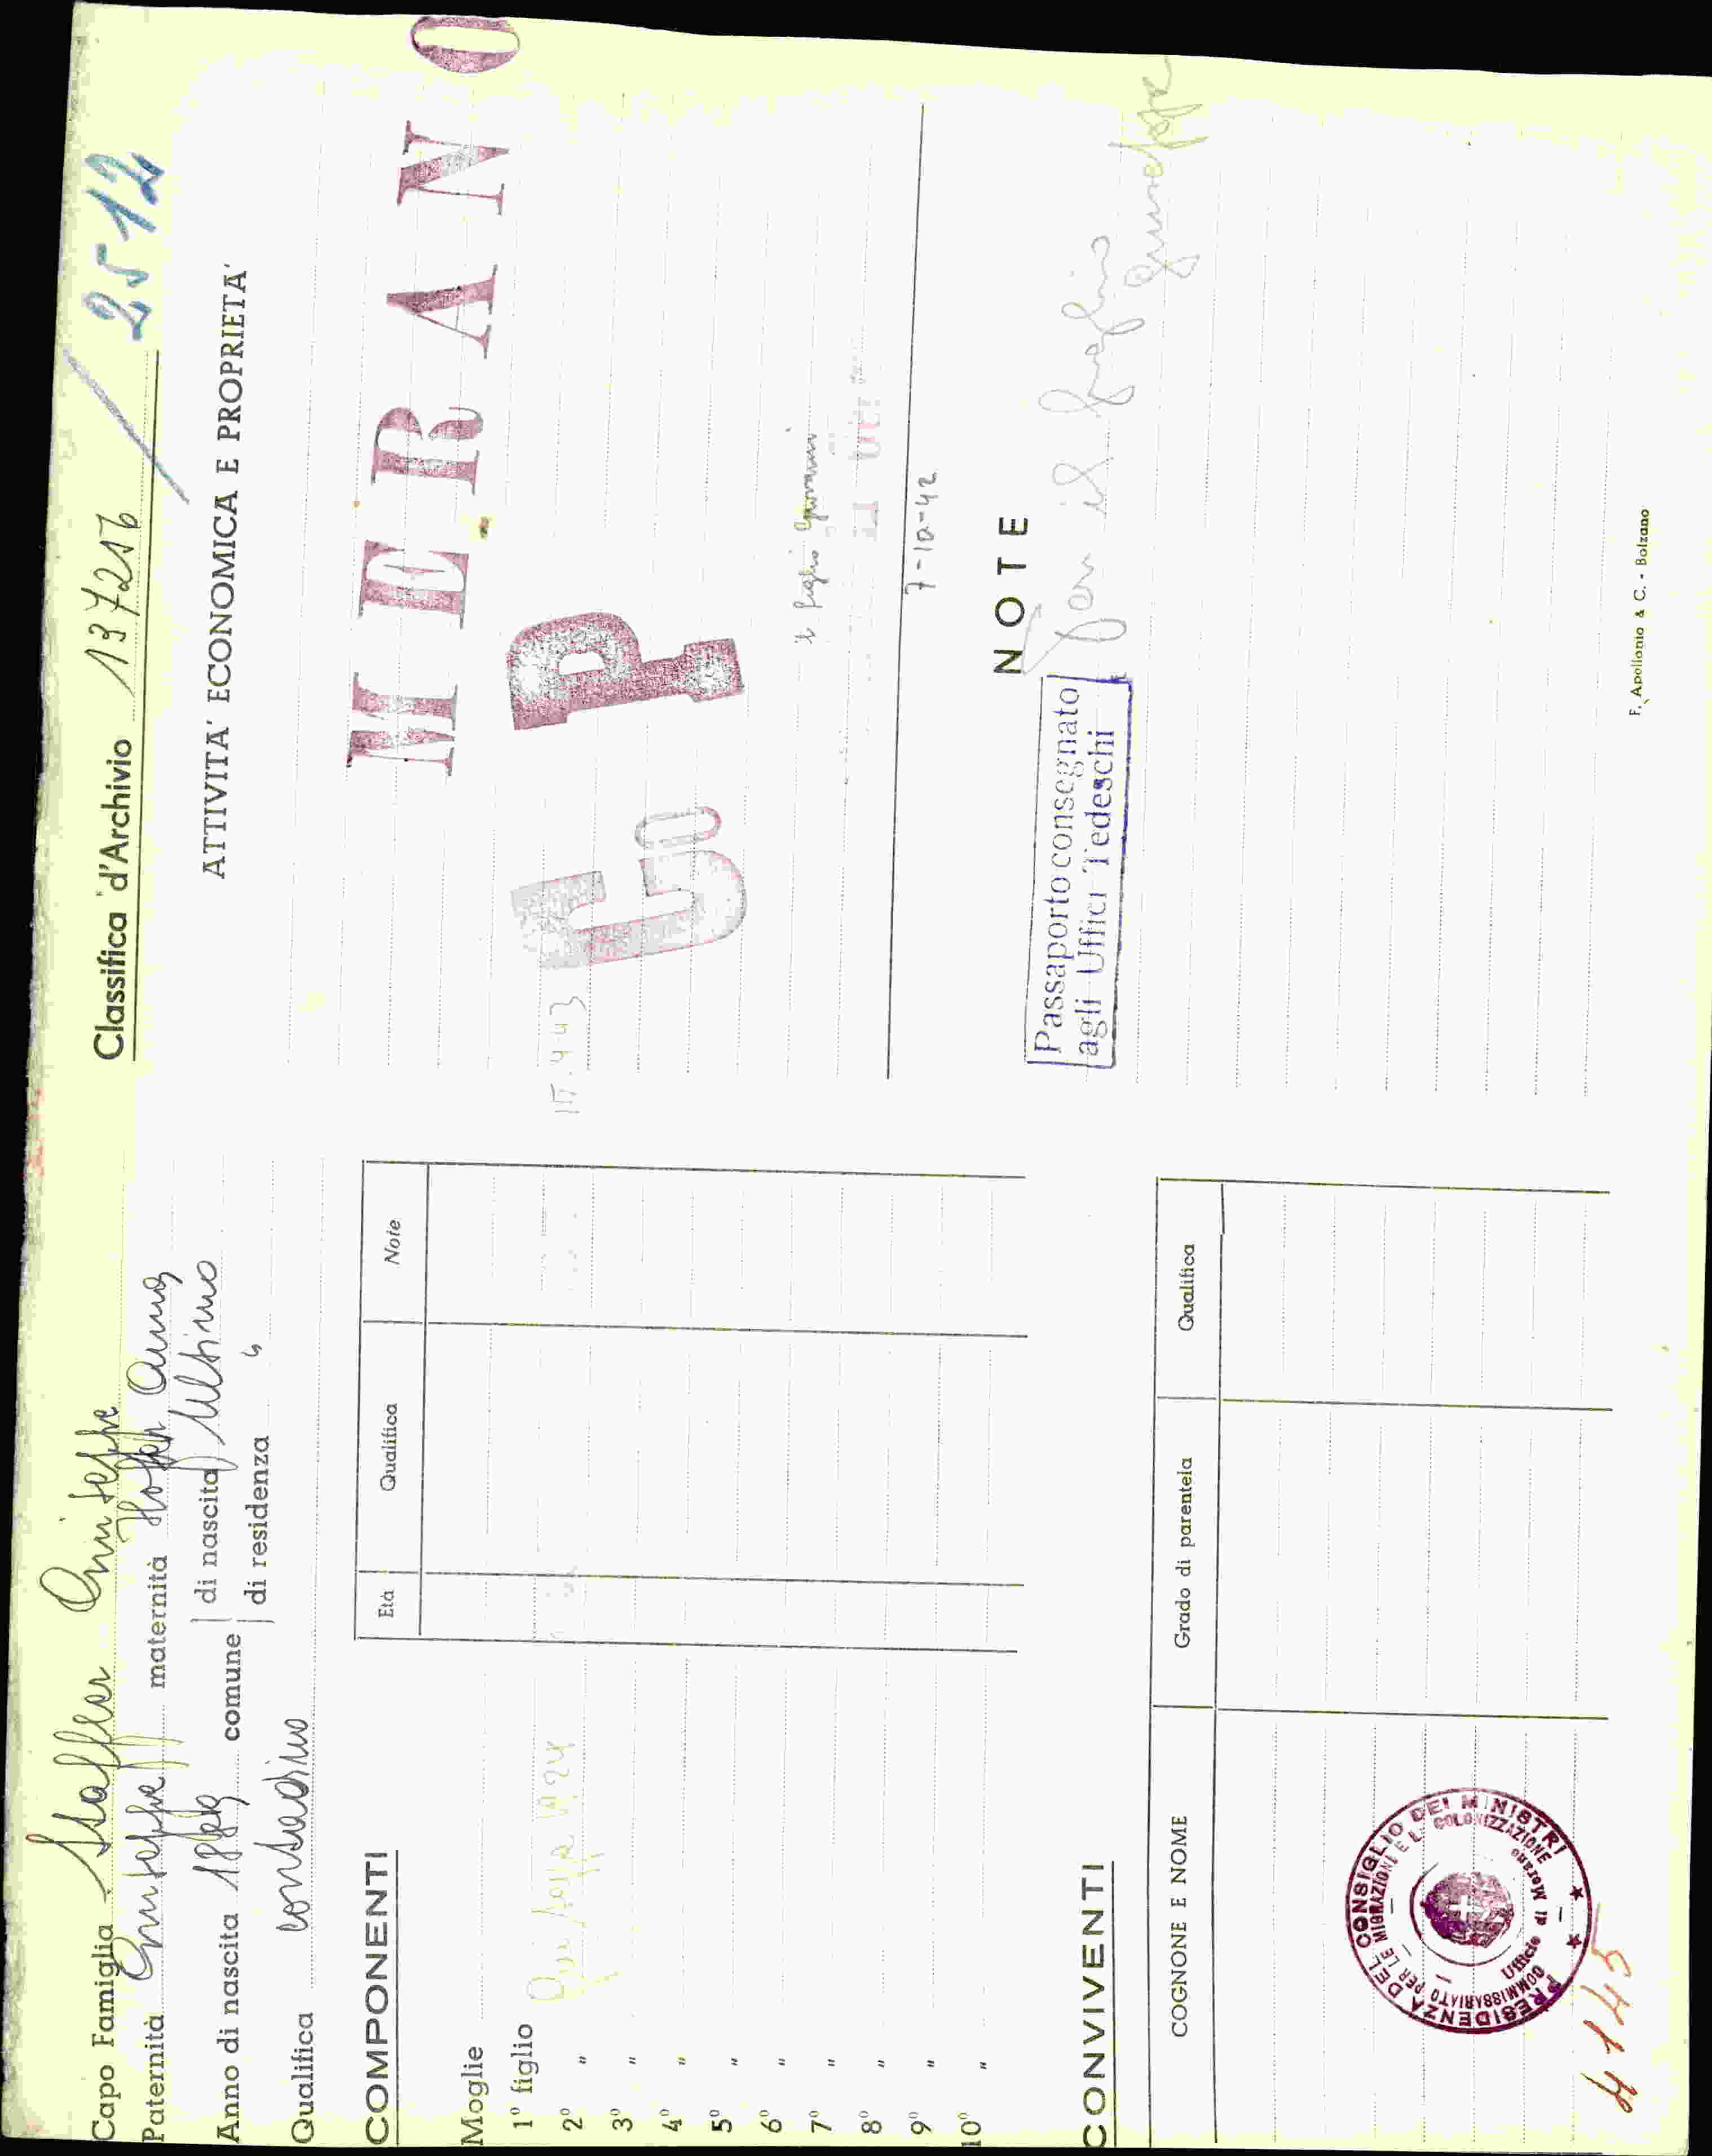 Capo Famiglia Staffler Giuseppe
Paternità Giuseppe maternità Anna
Anno di nascita comune di nascita Ultimo
di residenza "
Qualifica contadino
COMPONENTI
Età Qualifica Note
Moglie
1° figlio Giuseppe 1924
2° "
3° "
4° "
5° "
6° "
7° "
8° "
9° "
10° "
CONVIVENTI
COGNONE E NOME Grado di parentela Qualifica
PRESIDENZA DEL CONSIGLIO DEI MINISTRI
COMMISSARIATO PER LE MIGRAZIONI E LA COLONIZZAZIONE
Ufficio di Merano
Classifica d'Archivio 137256 / 2512
ATTIVITA' ECONOMICA E PROPRIETA'
MERANO
G P
il figlio Giovanni
7-10-42
NOTE
Passaporto consegnato
agli Uffici Tedeschi
per il figlio
Giuseppe
F. Apollonio & C. - Bolzano